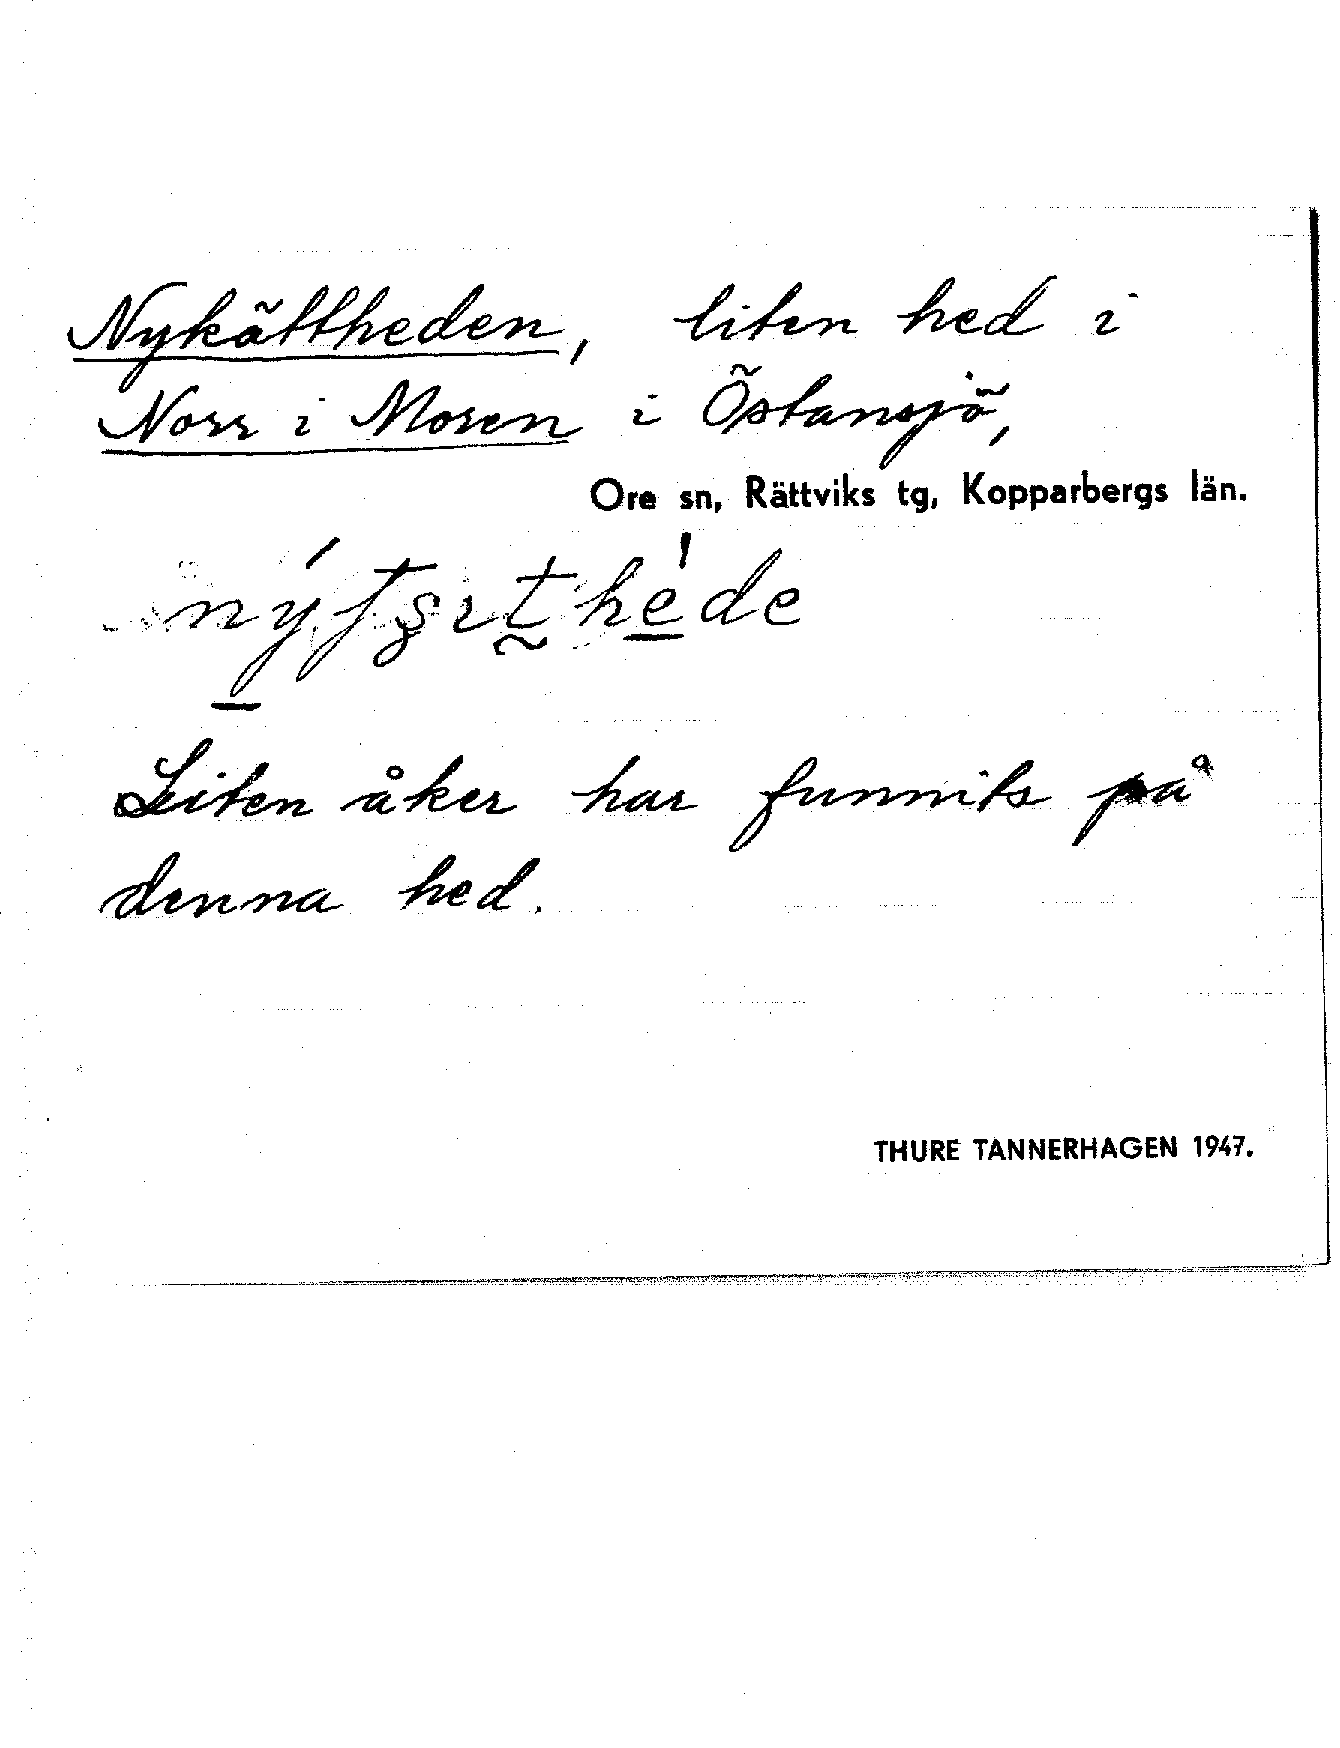 Nykättheden, liten hed i
Norr i Moren i Östansjö,
Ore sn, Rättviks tg, Kopparbergs län.
Liten åker har funnits på
denna hed.
THURE TANNERHAGEN 1947.